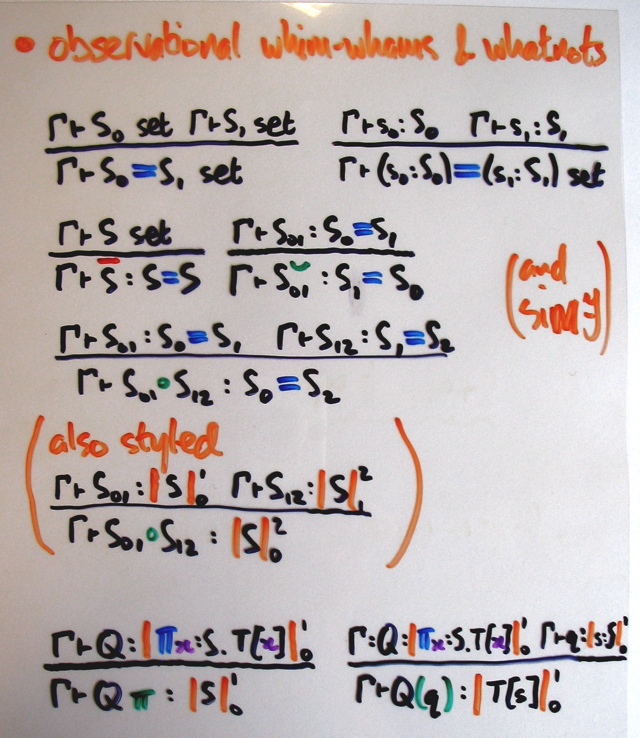 • observational whim-whams & whatnots
Γ⊢S₀ set Γ⊢S₁ set
Γ⊢S₀=S₁ set
Γ⊢s₀:S₀ Γ⊢s₁:S₁
Γ⊢(s₀:S₀)=(s₁:S₁) set
Γ⊢S set
Γ⊢S̅:S=S
Γ⊢S₀₁:S₀=S₁
Γ⊢S₀₁˘:S₁=S₀
(and
sim'y)
Γ⊢S₀₁:S₀=S₁ Γ⊢S₁₂:S₁=S₂
Γ⊢S₀₁∘S₁₂:S₀=S₂
(also styled
Γ⊢S₀₁:|S|₀¹ Γ⊢S₁₂:|S|₁²
Γ⊢S₀₁∘S₁₂:|S|₀²)
Γ⊢Q:|Πx:S.T[x]|₀¹
Γ⊢Qπ:|S|₀¹
Γ:Q:|Πx:S.T[x]|₀¹ Γ⊢q:|s:S|₀¹
Γ⊢Q(q):|T[s]|₀¹